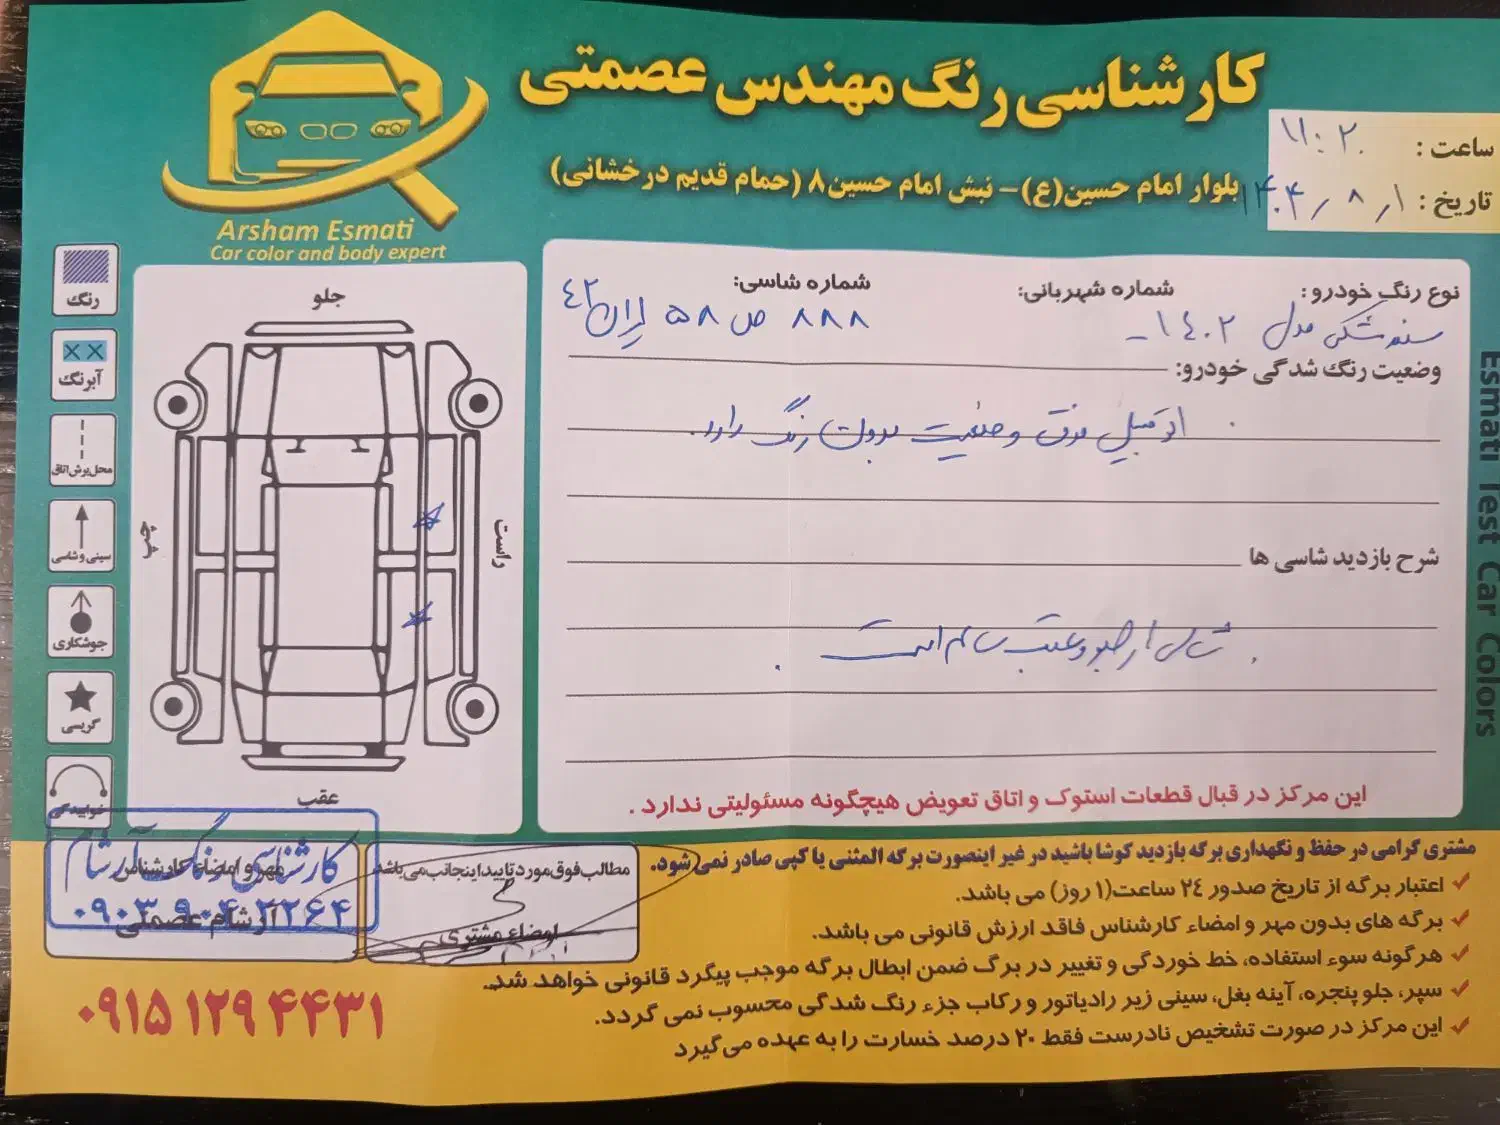 کارشناسی رنگ مهندس عصمتی
بلوار امام حسین(ع)- نبش امام حسین۸ (حمام قدیم درخشانی)
ساعت : ۱۱:۲۰
تاریخ : ۱۴۰۴٫۸٫۱
Arsham Esmati
Car color and body expert
نوع رنگ خودرو :
شماره شهربانی:
شماره شاسی:
مدل ۱۴۰۲
۸۸۸ ص ۵۸ ایران ۴۲
وضعیت رنگ شدگی خودرو:
فوق وضعیت بدون رنگ دارد.
شرح بازدید شاسی ها
شاسی از جلو و عقب سالم است.
این مرکز در قبال قطعات استوک و اتاق تعویض هیچگونه مسئولیتی ندارد .
رنگ
آبرنگ
محل برش اتاق
سینی و شاسی
جوشکاری
گریسی
خوابیدگی
جلو
راست
چپ
عقب
Esmati Test Car Colors
مشتری گرامی در حفظ و نگهداری برگه بازدید کوشا باشید در غیر اینصورت برگه المثنی یا کپی صادر نمی شود.
✓ اعتبار برگه از تاریخ صدور ۲۴ ساعت(۱ روز) می باشد.
✓ برگه های بدون مهر و امضاء کارشناس فاقد ارزش قانونی می باشد.
✓ هرگونه سوء استفاده، خط خوردگی و تغییر در برگ ضمن ابطال برگه موجب پیگرد قانونی خواهد شد.
✓ سپر، جلو پنجره، آینه بغل، سینی زیر رادیاتور و رکاب جزء رنگ شدگی محسوب نمی گردد.
✓ این مرکز در صورت تشخیص نادرست فقط ۲۰ درصد خسارت را به عهده می گیرد
مطالب فوق مورد تایید اینجانب می باشد
امضاء مشتری
مهر و امضاء کارشناس
آرشام عصمتی
کارشناسی رنگ آرشام
۰۹۰۳ ۹۰۴ ۲۲۶۴
۰۹۱۵ ۱۲۹ ۴۴۳۱